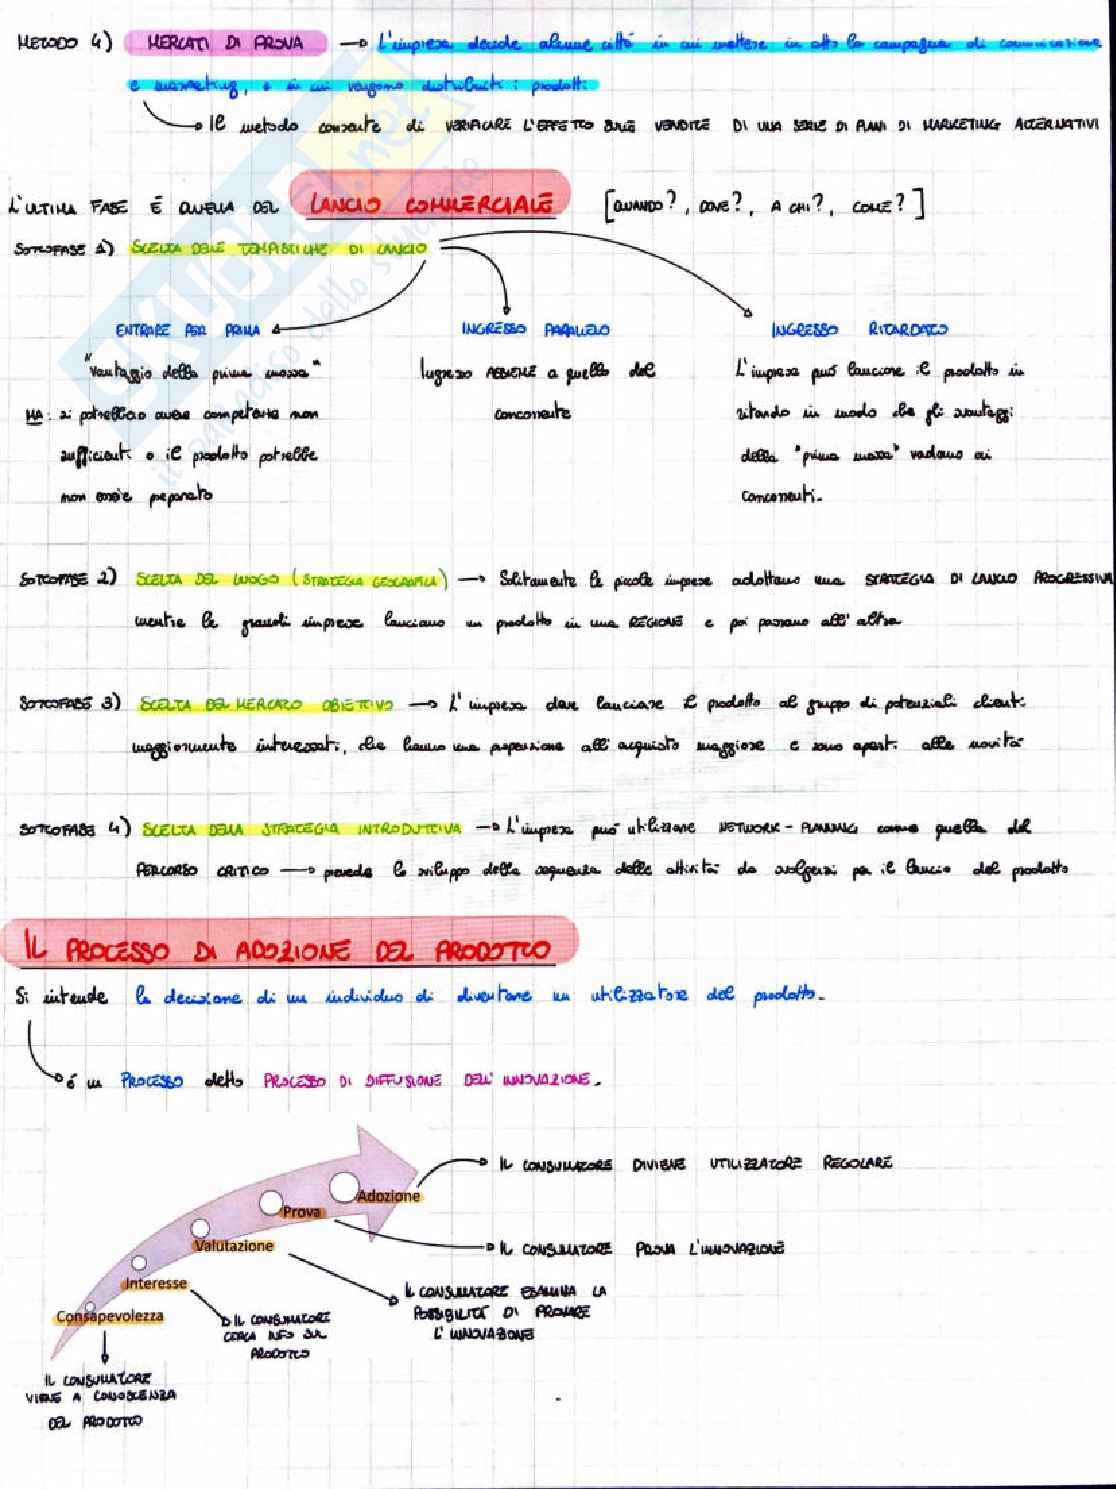 METODO 4) MERCATI DI PROVA → L'impresa decide alcune città in cui mettere in atto la campagna di comunicazione
e marketing, e in cui vengono distribuiti i prodotti.
Il metodo consente di VERIFICARE L'EFFETTO SULLE VENDITE DI UNA SERIE DI PIANI DI MARKETING ALTERNATIVI
L'ULTIMA FASE È QUELLA DEL LANCIO COMMERCIALE [QUANDO?, DOVE?, A CHI?, COME?]
SOTTOFASE 1) SCELTA DELLE TEMPISTICHE DI LANCIO
ENTRARE PER PRIMA INGRESSO PARALLELO INGRESSO RITARDATO
"Vantaggio della prima mossa" Ingresso ASSIEME a quello del L'impresa può lanciare il prodotto in
MA: si potrebbero avere competenze non concorrente ritardo in modo che gli svantaggi
sufficienti o il prodotto potrebbe della "prima mossa" vadano ai
non essere preparato concorrenti.
SOTTOFASE 2) SCELTA DEL LUOGO (STRATEGIA GEOGRAFICA) → Solitamente le piccole imprese adottano una STRATEGIA DI LANCIO PROGRESSIVA
mentre le grandi imprese lanciano un prodotto in una REGIONE e poi passano all'altra
SOTTOFASE 3) SCELTA DEL MERCATO OBIETTIVO → L'impresa deve lanciare il prodotto al gruppo di potenziali clienti
maggiormente interessati, che hanno una propensione all'acquisto maggiore e sono aperti alle novità
SOTTOFASE 4) SCELTA DELLA STRATEGIA INTRODUTTIVA → L'impresa può utilizzare NETWORK-PLANNING come quella del
PERCORSO CRITICO → prevede lo sviluppo della sequenza delle attività da svolgersi per il lancio del prodotto
IL PROCESSO DI ADOZIONE DEL PRODOTTO
Si intende la decisione di un individuo di diventare un utilizzatore del prodotto.
è un PROCESSO detto PROCESSO DI DIFFUSIONE DELL'INNOVAZIONE.
IL CONSUMATORE DIVIENE UTILIZZATORE REGOLARE
Adozione
Prova
Valutazione IL CONSUMATORE PROVA L'INNOVAZIONE
Interesse IL CONSUMATORE ESAMINA LA
POSSIBILITÀ DI PROVARE
L'INNOVAZIONE
Consapevolezza IL CONSUMATORE
CERCA INFO SUL
PRODOTTO
IL CONSUMATORE
VIENE A CONOSCENZA
DEL PRODOTTO
SKUOLA.net
il paradiso dello studente